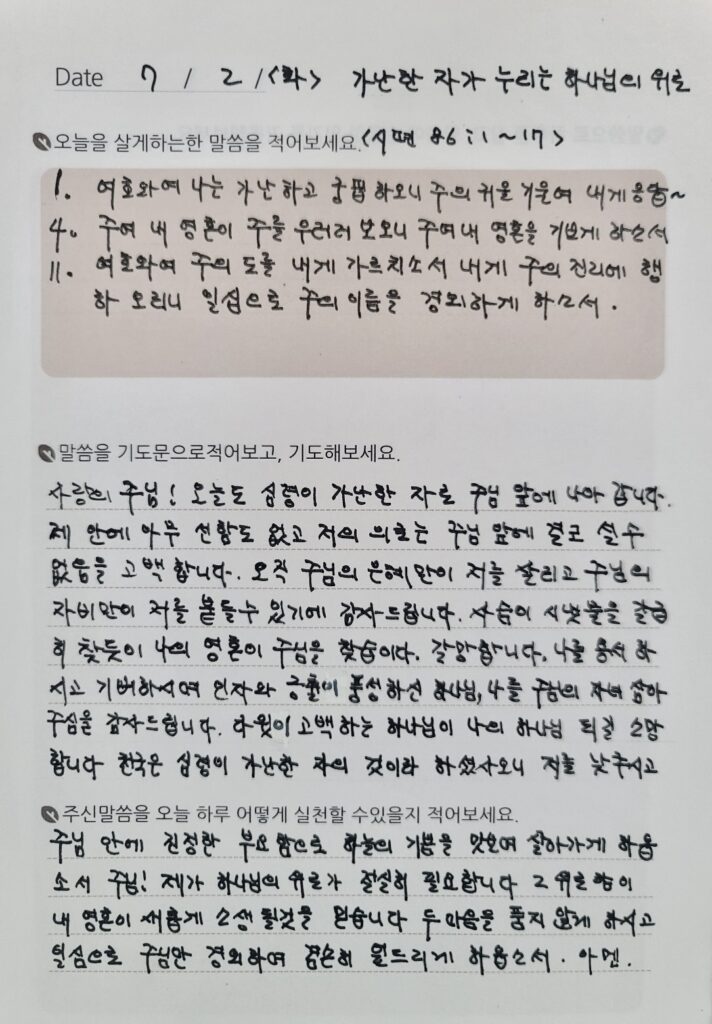 Date 7 / 2 /<화> 가난한 자가 누리는 하나님의 위로
오늘을 살게하는한 말씀을 적어보세요.<시편 86:1~17>
1. 여호와여 나는 가난하고 궁핍하오니 주의 귀를 기울여 내게 응답~
4. 주여 내 영혼이 주를 우러러 보오니 주여 내 영혼을 기쁘게 하소서
11. 여호와여 주의 도를 내게 가르치소서 내게 주의 진리에 행
하 오리니 일심으로 주의 이름을 경외하게 하소서.
말씀을 기도문으로적어보고, 기도해보세요.
사랑의 주님! 오늘도 심령이 가난한 자로 주님 앞에 나아 갑니다.
제 안에 아무 선함도 없고 저의 의로는 주님 앞에 결코 설 수
없음을 고백 합니다. 오직 주님의 은혜만이 저를 살리고 주님의
자비만이 저를 붙들수 있기에 감사드립니다. 사슴이 시냇물을 갈급
히 찾듯이 나의 영혼이 주님을 찾습니다. 갈망합니다. 나를 용서 하
시고 기뻐하시며 인자와 긍휼이 풍성하신 하나님, 나를 주님의 자녀 삼아
주심을 감사드립니다. 다윗이 고백하는 하나님이 나의 하나님 되길 소망
합니다 천국은 심령이 가난한 자의 것이라 하셨사오니 저를 낮추시고
주신말씀을 오늘 하루 어떻게 실천할 수있을지 적어보세요.
주님 안에 진정한 부요함으로 하늘의 기쁨을 맛보며 살아가게 하옵
소서 주님! 제가 하나님의 위로가 절실히 필요합니다 그 위로 함이
내 영혼이 새롭게 소생 될것을 믿습니다 두 마음을 품지 않게 하시고
일심으로 주님만 경외하며 겸손히 엎드리게 하옵소서. 아멘.